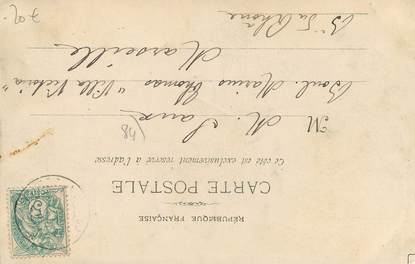 RÉPUBLIQUE FRANÇAISE
CARTE POSTALE
Ce côté est exclusivement réservé à l'adresse
M. M. Saux
Boul. Marius Thomas "Villa Victoria"
Marseille
B. du Rhône